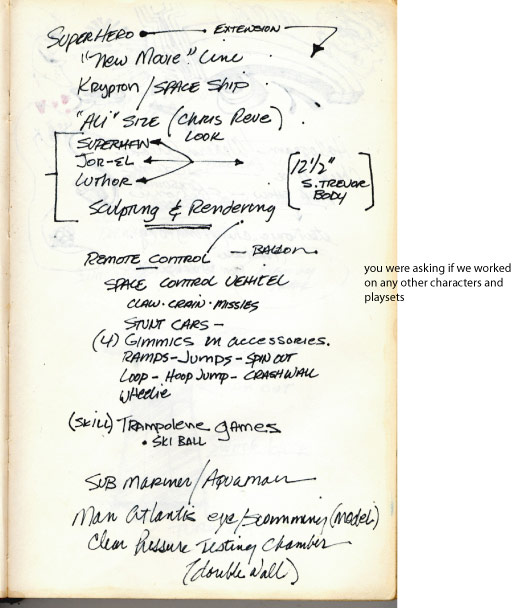 SUPERHERO EXTENSION
"New Movie" Line
Krypton / SPACE SHIP
"Ali" SIZE (Chris Reve)
LOOK
SUPERMAN
JOR-EL
LUTHOR
12½"
S. TREVOR
BODY
Sculpting & Rendering
REMOTE CONTROL – BALLON
SPACE CONTROL VEHICEL
CLAW · CRAIN · MISSIES
STUNT CARS –
(4) GIMMICS in accessories.
RAMPS – JUMPS – SPIN OUT
LOOP – HOOP JUMP – CRASHWALL
Wheelie
(SKILL) Trampolene games
• SKI BALL
SUB MARINER / Aquaman
Man Atlantis eye / (model)
Clear Pressure Testing Chamber
(double wall)
you were asking if we worked
on any other characters and
playsets